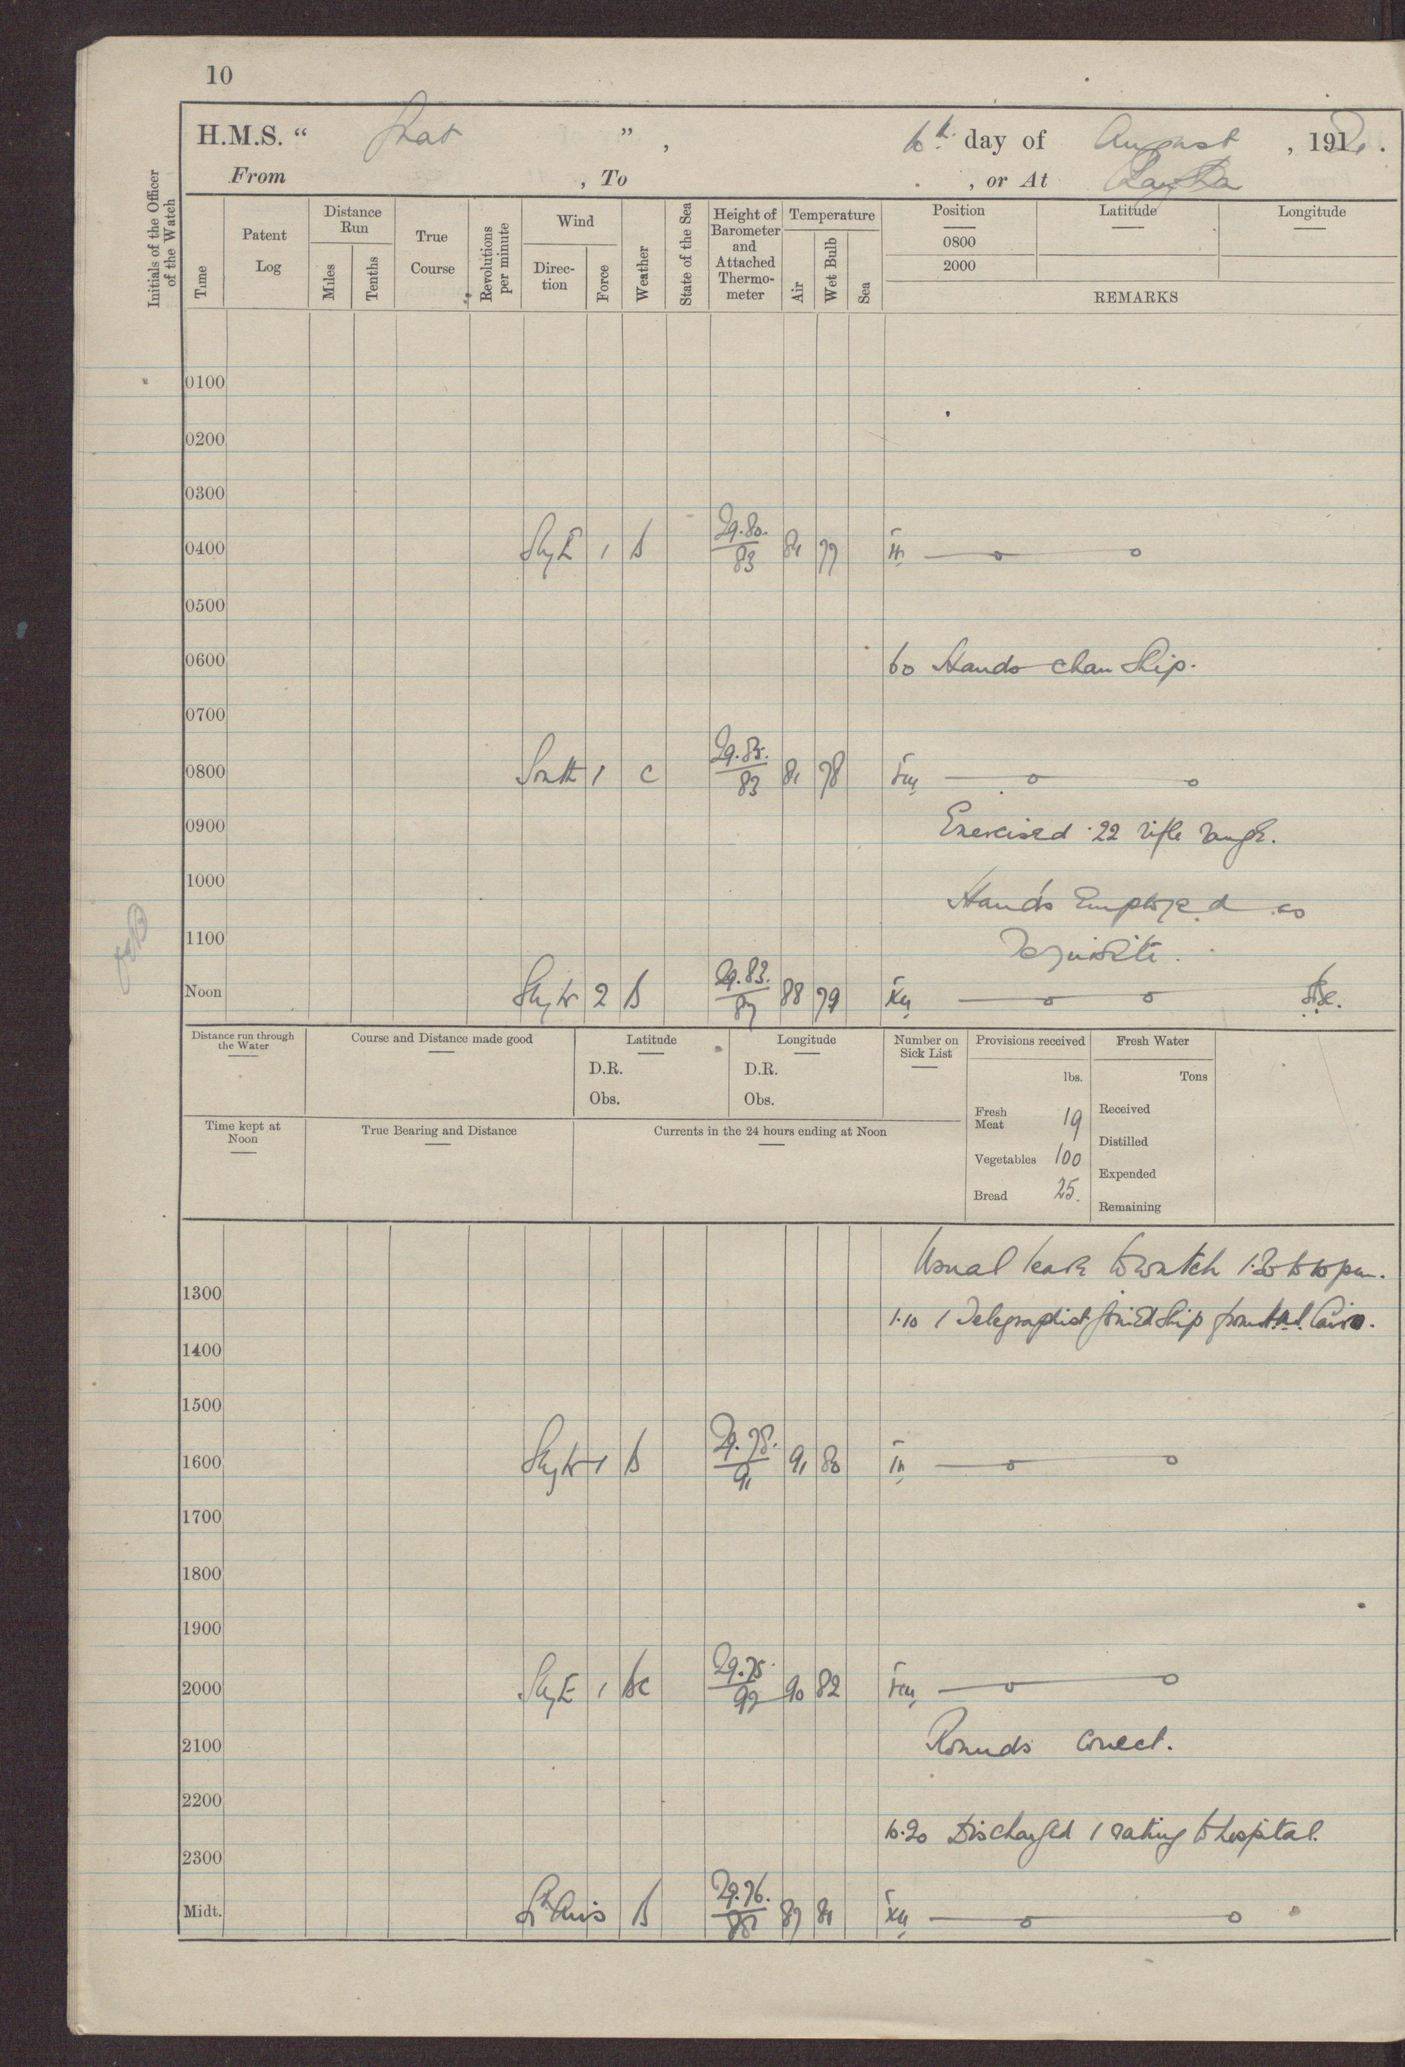 10
H.M.S. “ Gnat ”, 6th day of August , 192 .
From , To , or At
Initials of the Officer of the Watch
Time
Patent Log
Distance Run
Miles
Tenths
True Course
Revolutions per minute
Wind
Direction
Force
Weather
State of the Sea
Height of Barometer and Attached Thermometer
Temperature
Air
Wet Bulb
Sea
Position
Latitude
Longitude
0800
2000
REMARKS
0100
0200
0300
0400 SbyE 1 b 29.80. 83 81 77 IV
0500
0600 6.0 Hands clean Ship.
0700
0800 South 1 c 29.85. 83 81 78 VIII
0900 Exercised .22 rifle range.
1000 Hands Employed as
1100 requisite.
Noon SbyW 2 b 29.83. 87 88 79 XII
Distance run through the Water
Course and Distance made good
Latitude
D.R.
Obs.
Longitude
D.R.
Obs.
Number on Sick List
Provisions received
lbs.
Fresh Meat 19
Vegetables 100
Bread 25.
Fresh Water
Tons
Received
Distilled
Expended
Remaining
Time kept at Noon
True Bearing and Distance
Currents in the 24 hours ending at Noon
Usual leave to watch 1.20 to 10 pm.
1300
1.10 1 Telegraphist joined Ship from H.M.S. Cairo.
1400
1500
1600 SbyW 1 b 29.78. 91 91 80 IV
1700
1800
1900
2000 SbyE 1 bc 29.75. 92 90 82 VIII
2100 Rounds correct.
2200
10.20 Discharged 1 rating to hospital.
2300
Midt. Lt Airs b 29.76. 88 87 81 XII